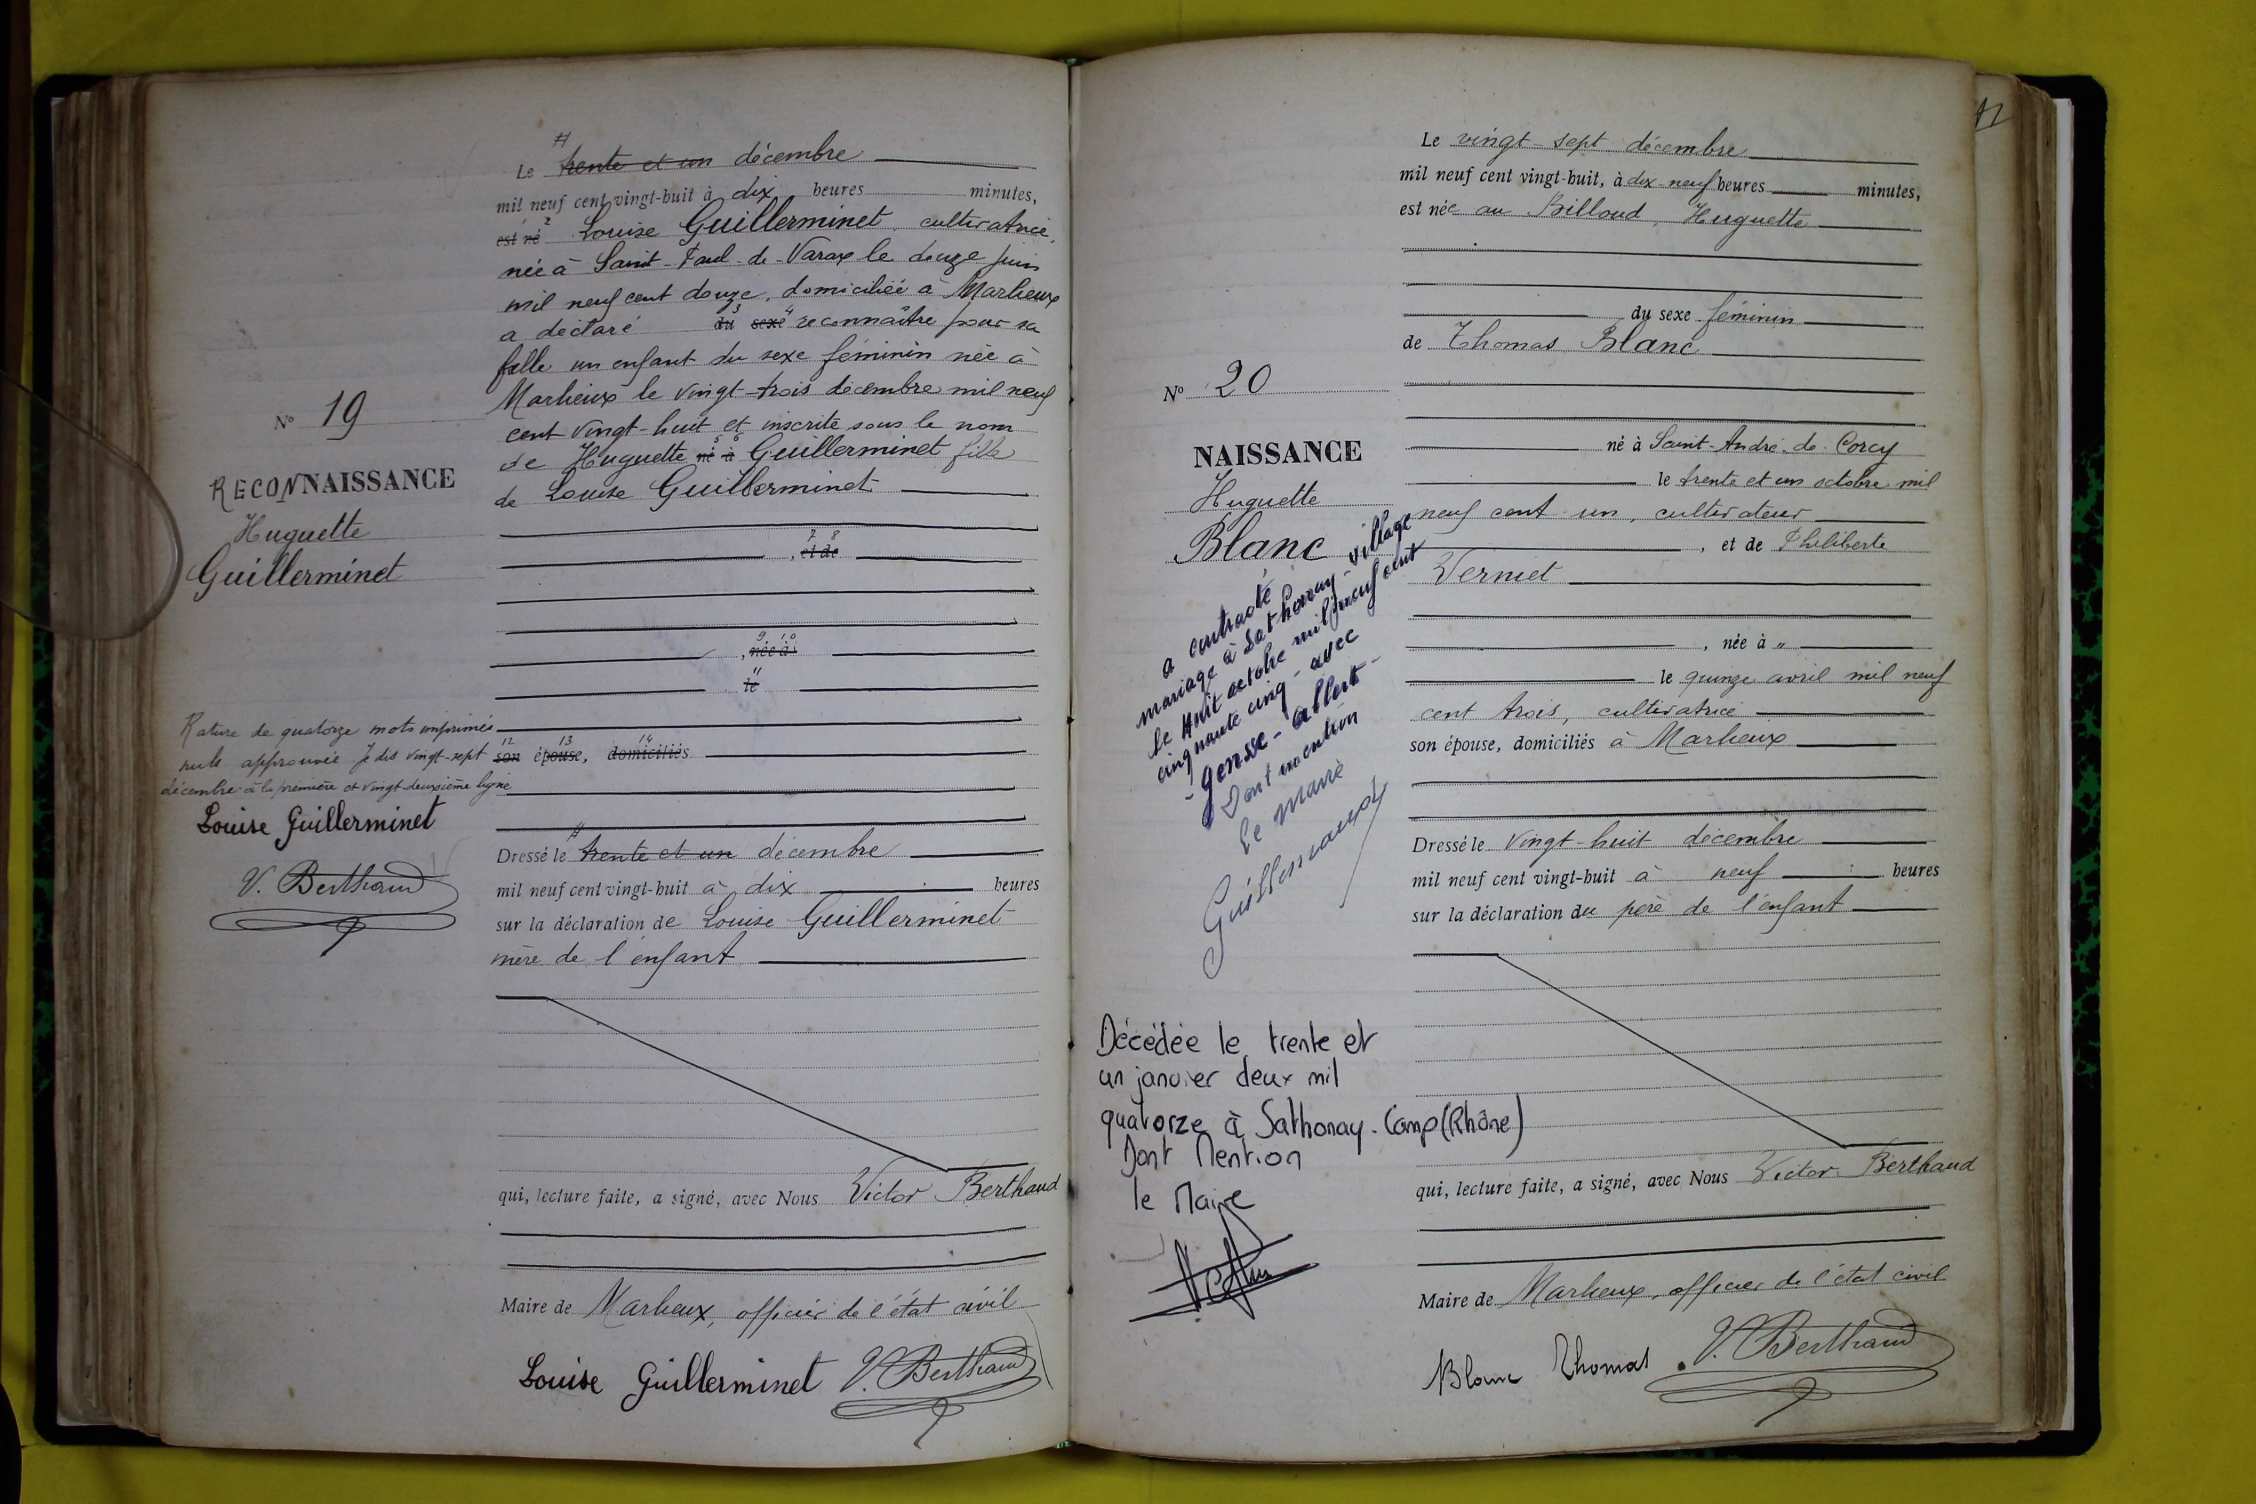 Le trente et un décembre
mil neuf cent vingt-huit à dix heures minutes,
est né 2 Louise Guillerminet, cultivatrice,
née à Saint-Paul-de-Varax le douze juin
mil neuf cent douze, domiciliée à Marlieux
a déclaré du 3 sexe 4 reconnaître pour sa
fille un enfant du sexe féminin née à
Marlieux le vingt-trois décembre mil neuf
cent vingt-huit et inscrite sous le nom
de Huguette né 5 à 6 Guillerminet fille
de Louise Guillerminet
7 8
, et de
9 10
, née à
11
le
12 13 14
son épouse, domiciliés
Dressé le trente et un décembre
mil neuf cent vingt-huit à dix heures
sur la déclaration de Louise Guillerminet
mère de l'enfant
qui, lecture faite, a signé, avec Nous Victor Berthaud
Maire de Marlieux, officier de l'état civil
Louise Guillerminet V. Berthaud
No 19
RECONNAISSANCE
Huguette
Guillerminet
Rature de quatorze mots imprimés
nuls approuvée Je dis vingt-sept
décembre à la première et vingt-deuxième ligne
Louise Guillerminet
V. Berthaud
Le vingt-sept décembre
mil neuf cent vingt-huit, à dix-neuf heures minutes,
est née au Billoud, Huguette
du sexe féminin
de Thomas Blanc
né à Saint-André-de-Corcy
le trente et un octobre mil
neuf cent un, cultivateur
, et de Philiberte
Vernet
, née à "
le quinze avril mil neuf
cent trois, cultivatrice
son épouse, domiciliés à Marlieux
Dressé le vingt-huit décembre
mil neuf cent vingt-huit à neuf heures
sur la déclaration du père de l'enfant
qui, lecture faite, a signé, avec Nous Victor Berthaud
Maire de Marlieux, officier de l'état civil
Blanc Thomas V. Berthaud
No 20
NAISSANCE
Huguette
Blanc
a contracté
mariage à Sathonay-village
le huit octobre mil neuf cent
cinquante cinq - avec
- Gensse - Albert -
Dont mention
Le Maire
Décédée le trente et
un janvier deux mil
quatorze à Sathonay-Camp (Rhône)
Dont Mention
le Maire